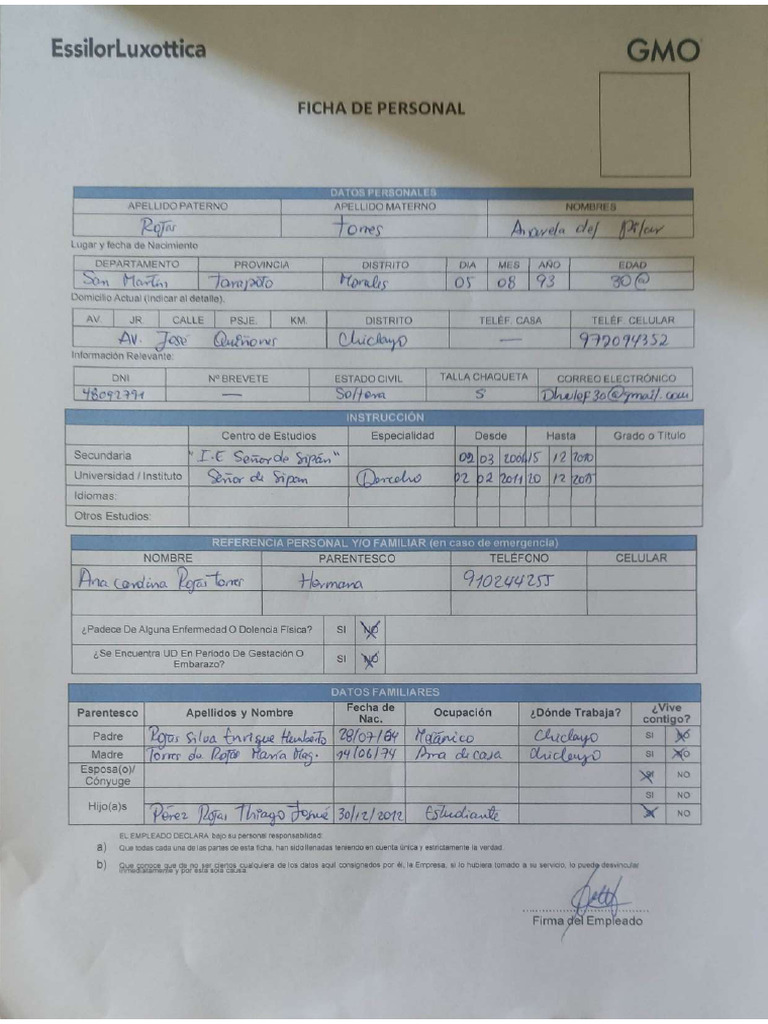 EssilorLuxottica GMO
FICHA DE PERSONAL
DATOS PERSONALES
APELLIDO PATERNO APELLIDO MATERNO NOMBRES
Rojas Torres del Pilar
Lugar y fecha de Nacimiento
DEPARTAMENTO PROVINCIA DISTRITO DIA MES AÑO EDAD
San Martín Tarapoto Morales 05 08 93 30
Domicilio Actual (Indicar al detalle).
AV. JR. CALLE PSJE. KM. DISTRITO TELÉF. CASA TELÉF. CELULAR
Av. José Quiñones Chiclayo — 972094352
Información Relevante:
DNI Nº BREVETE ESTADO CIVIL TALLA CHAQUETA CORREO ELECTRÓNICO
48092791 — Soltera S @gmail.com
INSTRUCCIÓN
Centro de Estudios Especialidad Desde Hasta Grado o Título
Secundaria "I.E Señor de Sipán" 02 03 15 12 2010
Universidad / Instituto Señor de Sipan Derecho 02 02 2011 20 12 2015
Idiomas:
Otros Estudios:
REFERENCIA PERSONAL Y/O FAMILIAR (en caso de emergencia)
NOMBRE PARENTESCO TELÉFONO CELULAR
Ana Carolina Rojas Torres Hermana 910244255
¿Padece De Alguna Enfermedad O Dolencia Física? SI NO
¿Se Encuentra UD En Periodo De Gestación O Embarazo? SI NO
DATOS FAMILIARES
Parentesco Apellidos y Nombre Fecha de Nac. Ocupación ¿Dónde Trabaja? ¿Vive contigo?
Padre Rojas Silva Enrique Humberto 28/07/64 Mecánico Chiclayo SI NO
Madre Torres de Rojas María Mag. 14/06/74 Ama de casa Chiclayo SI NO
Esposa(o)/ Cónyuge SI NO
SI NO
Hijo(a)s Pérez Rojas Thiago Josué 30/12/2012 Estudiante SI NO
EL EMPLEADO DECLARA bajo su personal responsabilidad:
a) Que todas cada una de las partes de esta ficha, han sido llenadas teniendo en cuenta única y estrictamente la verdad.
b) Que conoce que de no ser ciertos cualquiera de los datos aquí consignados por él, la Empresa, si lo hubiera tomado a su servicio, lo puede desvincular
inmediatamente y por esta sola causa.
Firma del Empleado